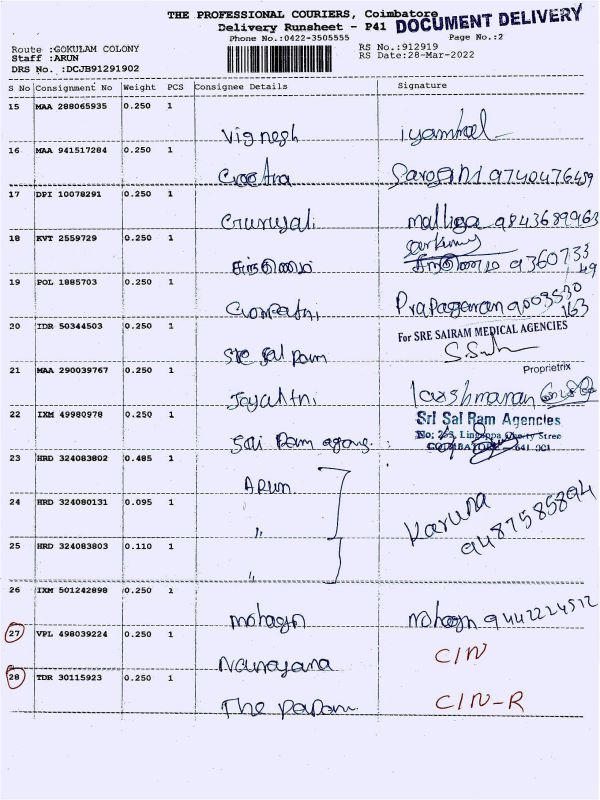 THE PROFESSIONAL COURIERS, Coimbatore
DOCUMENT DELIVERY
Delivery Runsheet - P41
Phone No.:0422-3505555 Page No.:2
Route :GOKULAM COLONY RS No.:912919
Staff :ARUN RS Date:28-Mar-2022
DRS No. :DCJB91291902
S No Consignment No Weight PCS Consignee Details Signature
15 MAA 288065935 0.250 1
Vignesh
16 MAA 941517284 0.250 1
9740476459
17 DPI 10078291 0.250 1
malliga 9843689963
18 KVT 2559729 0.250 1
9360733
49
19 POL 1885703 0.250 1
9003530
163
20 IDR 50344503 0.250 1
For SRE SAIRAM MEDICAL AGENCIES
Sre Sai Ram
21 MAA 290039767 0.250 1
Proprietrix
22 IXM 49980978 0.250 1
Sri Sai Ram Agencies
Sai Ram
COIMBATORE - 641 001
23 HRD 324083802 0.485 1
Arun
24 HRD 324080131 0.095 1
"
Karuna
9487585894
25 HRD 324083803 0.110 1
"
26 IXM 501242898 0.250 1
Mohagn Mohagn 9442224512
27 VPL 498039224 0.250 1
Narayana CIN
28 TDR 30115923 0.250 1
The CIN-R